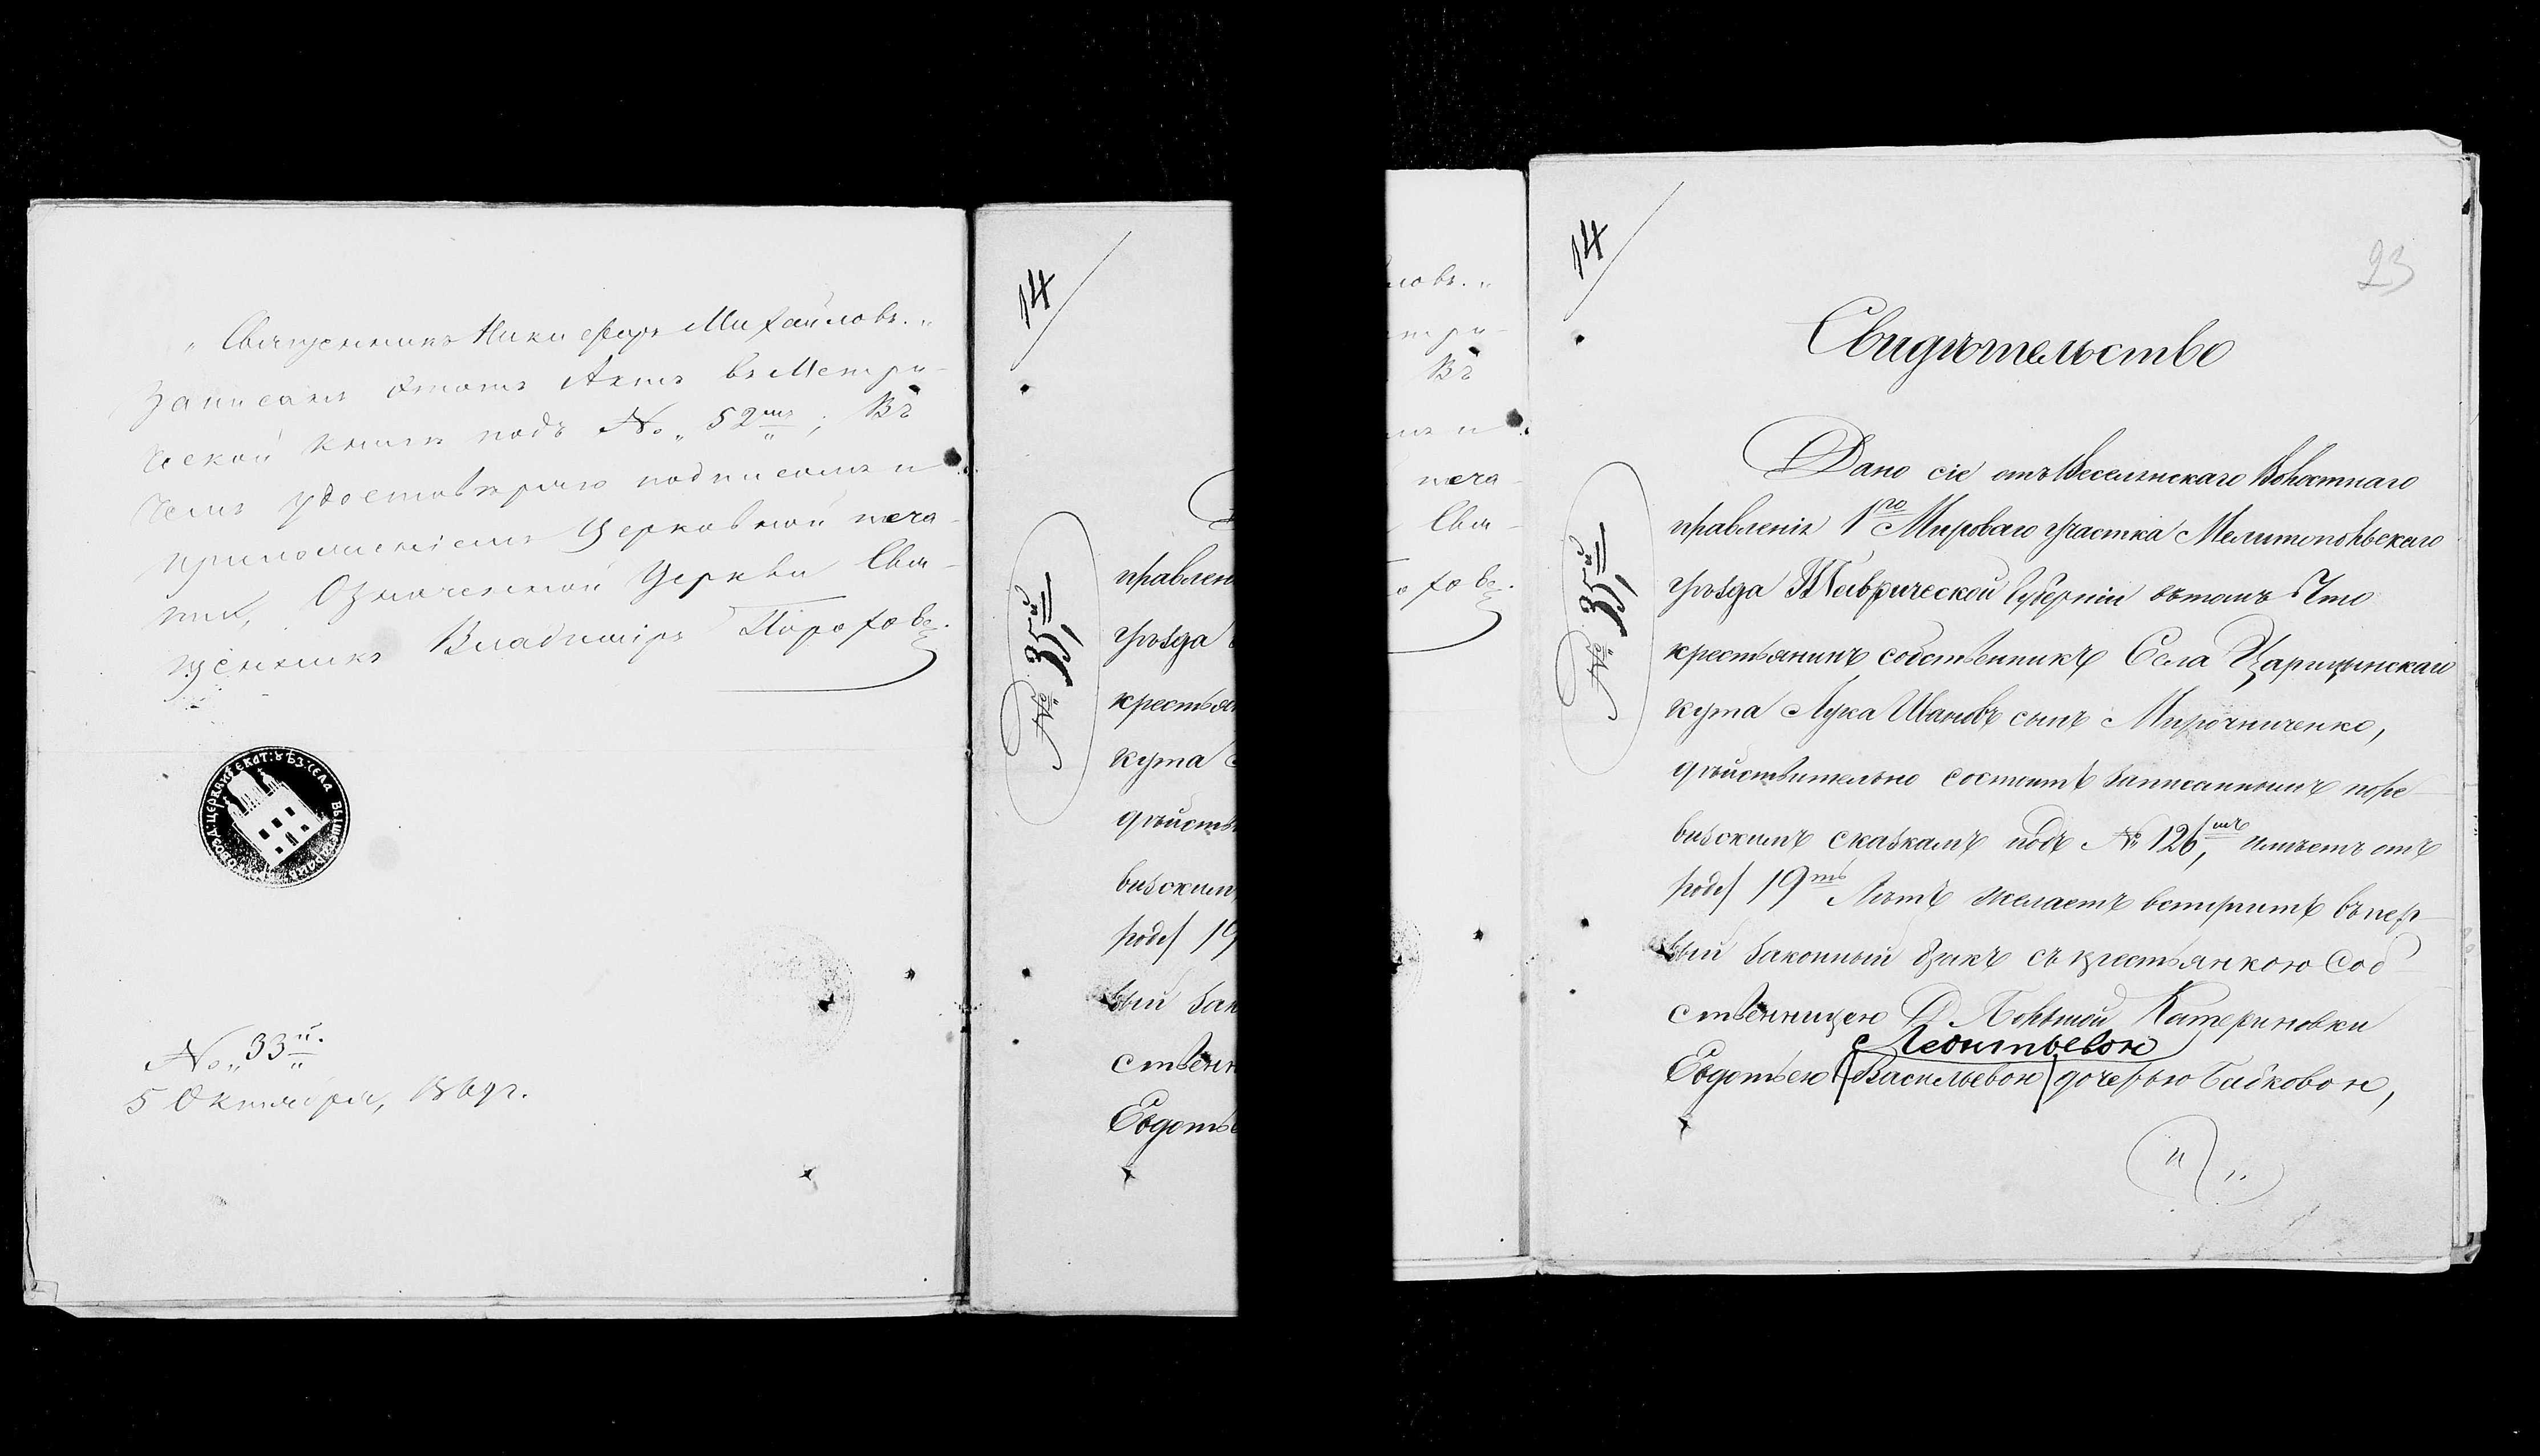 „Священникъ Никифоръ Михайловъ.„
Записанъ Этотъ Актъ въ Метри-
ческой книгѣ подъ №„ 52мъ; Въ
чемъ удостовѣряю подписомъ и
приложеніемъ Церковной печа-
ти, Означенной Церкви Свя-
щенникъ Владиміръ
№„33й.
5 Октября, 1869г.
14
№ 35й
правлен
уѣзда
крестьян
кута
дѣйств
визским
роду 19
вый Зак
ственн
Евдоть
14
23
№ 35й
Свидѣтельство
Дано сіе отъ Веселянскаго Волостнаго
правленія 1го Мироваго участка Мелитопольскаго
уѣзда Таврической Губерніи вътомъ Что
крестьянинъ собственникъ Села Царицынскаго
кута Лука Ивановъ сынъ Мирочниченко,
дѣйствительно состоитъ Записаннымъ поре
визскимъ сказкамъ подъ № 126мъ, имѣетъ отъ
роду 19ть Лѣтъ желаетъ вступить въпер
вый Законный бракъ съ крестьянкою Соб
ственницею Д Бѣльшой Катериновки
Леонтьевою
Евдотьею (Васильевою) дочерью Бабковою,